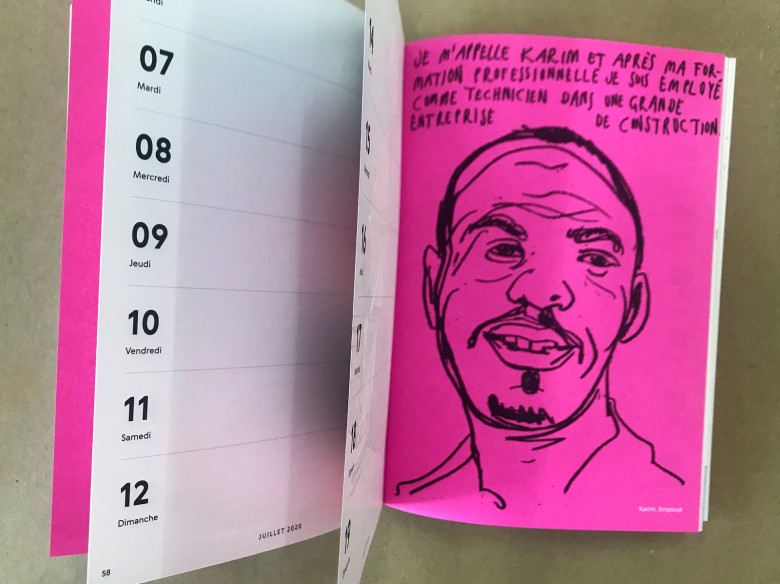 07
Mardi
08
Mercredi
09
Jeudi
10
Vendredi
11
Samedi
12
Dimanche
JUILLET 2020
58
14
15
16
17
18
19
JE M'APPELLE KARIM ET APRÈS MA FOR-
MATION PROFESSIONNELLE JE SUIS EMPLOYÉ
COMME TECHNICIEN DANS UNE GRANDE
ENTREPRISE DE CONSTRUCTION.
Karim, Employé